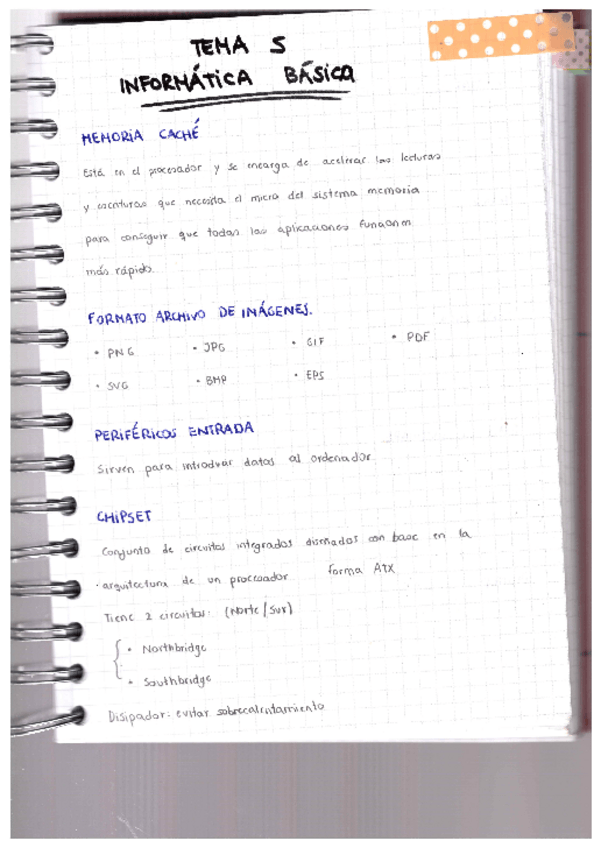 TEMA 5
INFORMÁTICA BÁSICA
MEMORIA CACHÉ
Está en el procesador y se encarga de acelerar las lecturas
y escrituras que necesita el micro del sistema memoria
para conseguir que todas las aplicaciones funcionen
más rápido.
FORMATO ARCHIVO DE IMÁGENES.
• PNG • JPG • GIF • PDF
• SVG • BMP • EPS
PERIFÉRICOS ENTRADA
Sirven para introducir datos al ordenador
CHIPSET
Conjunto de circuitos integrados diseñados con base en la
arquitectura de un procesador forma ATX
Tiene 2 circuitos: (Norte/Sur)
• Northbridge
• Southbridge
Disipador: evitar sobrecalentamiento